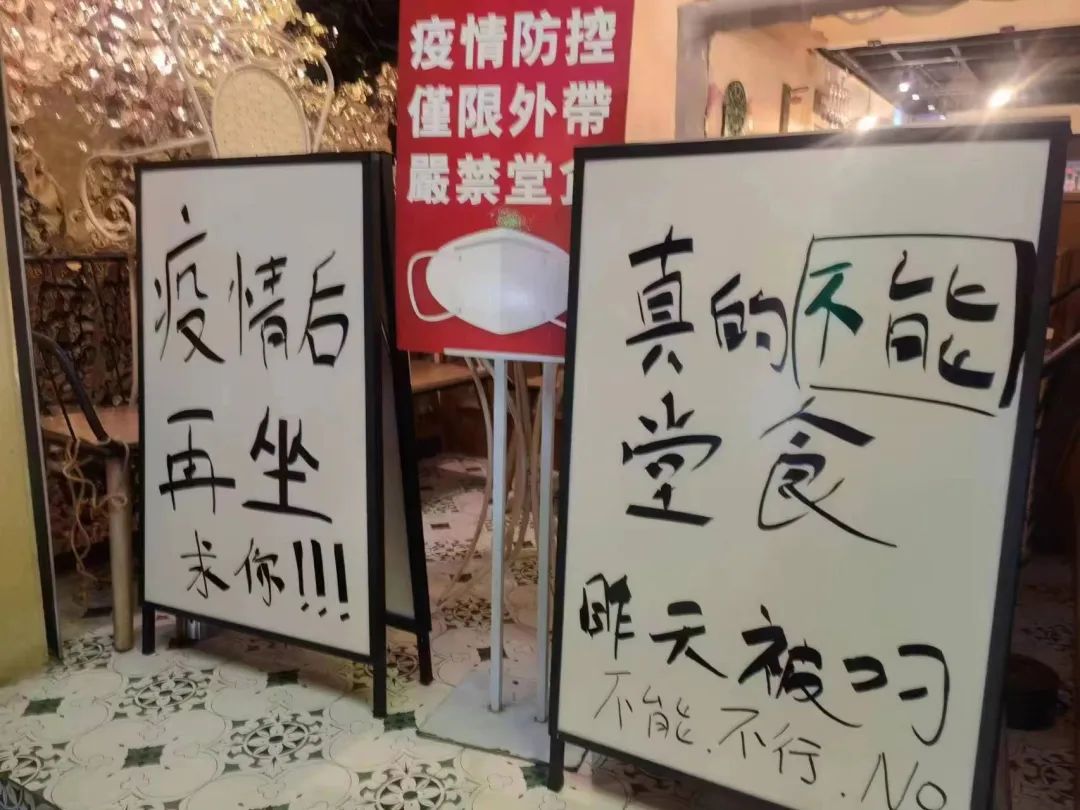 疫情防控
僅限外帶
嚴禁堂食
疫情后
再坐
求你!!!
真的不能
堂食
昨天被
不能.不行.No